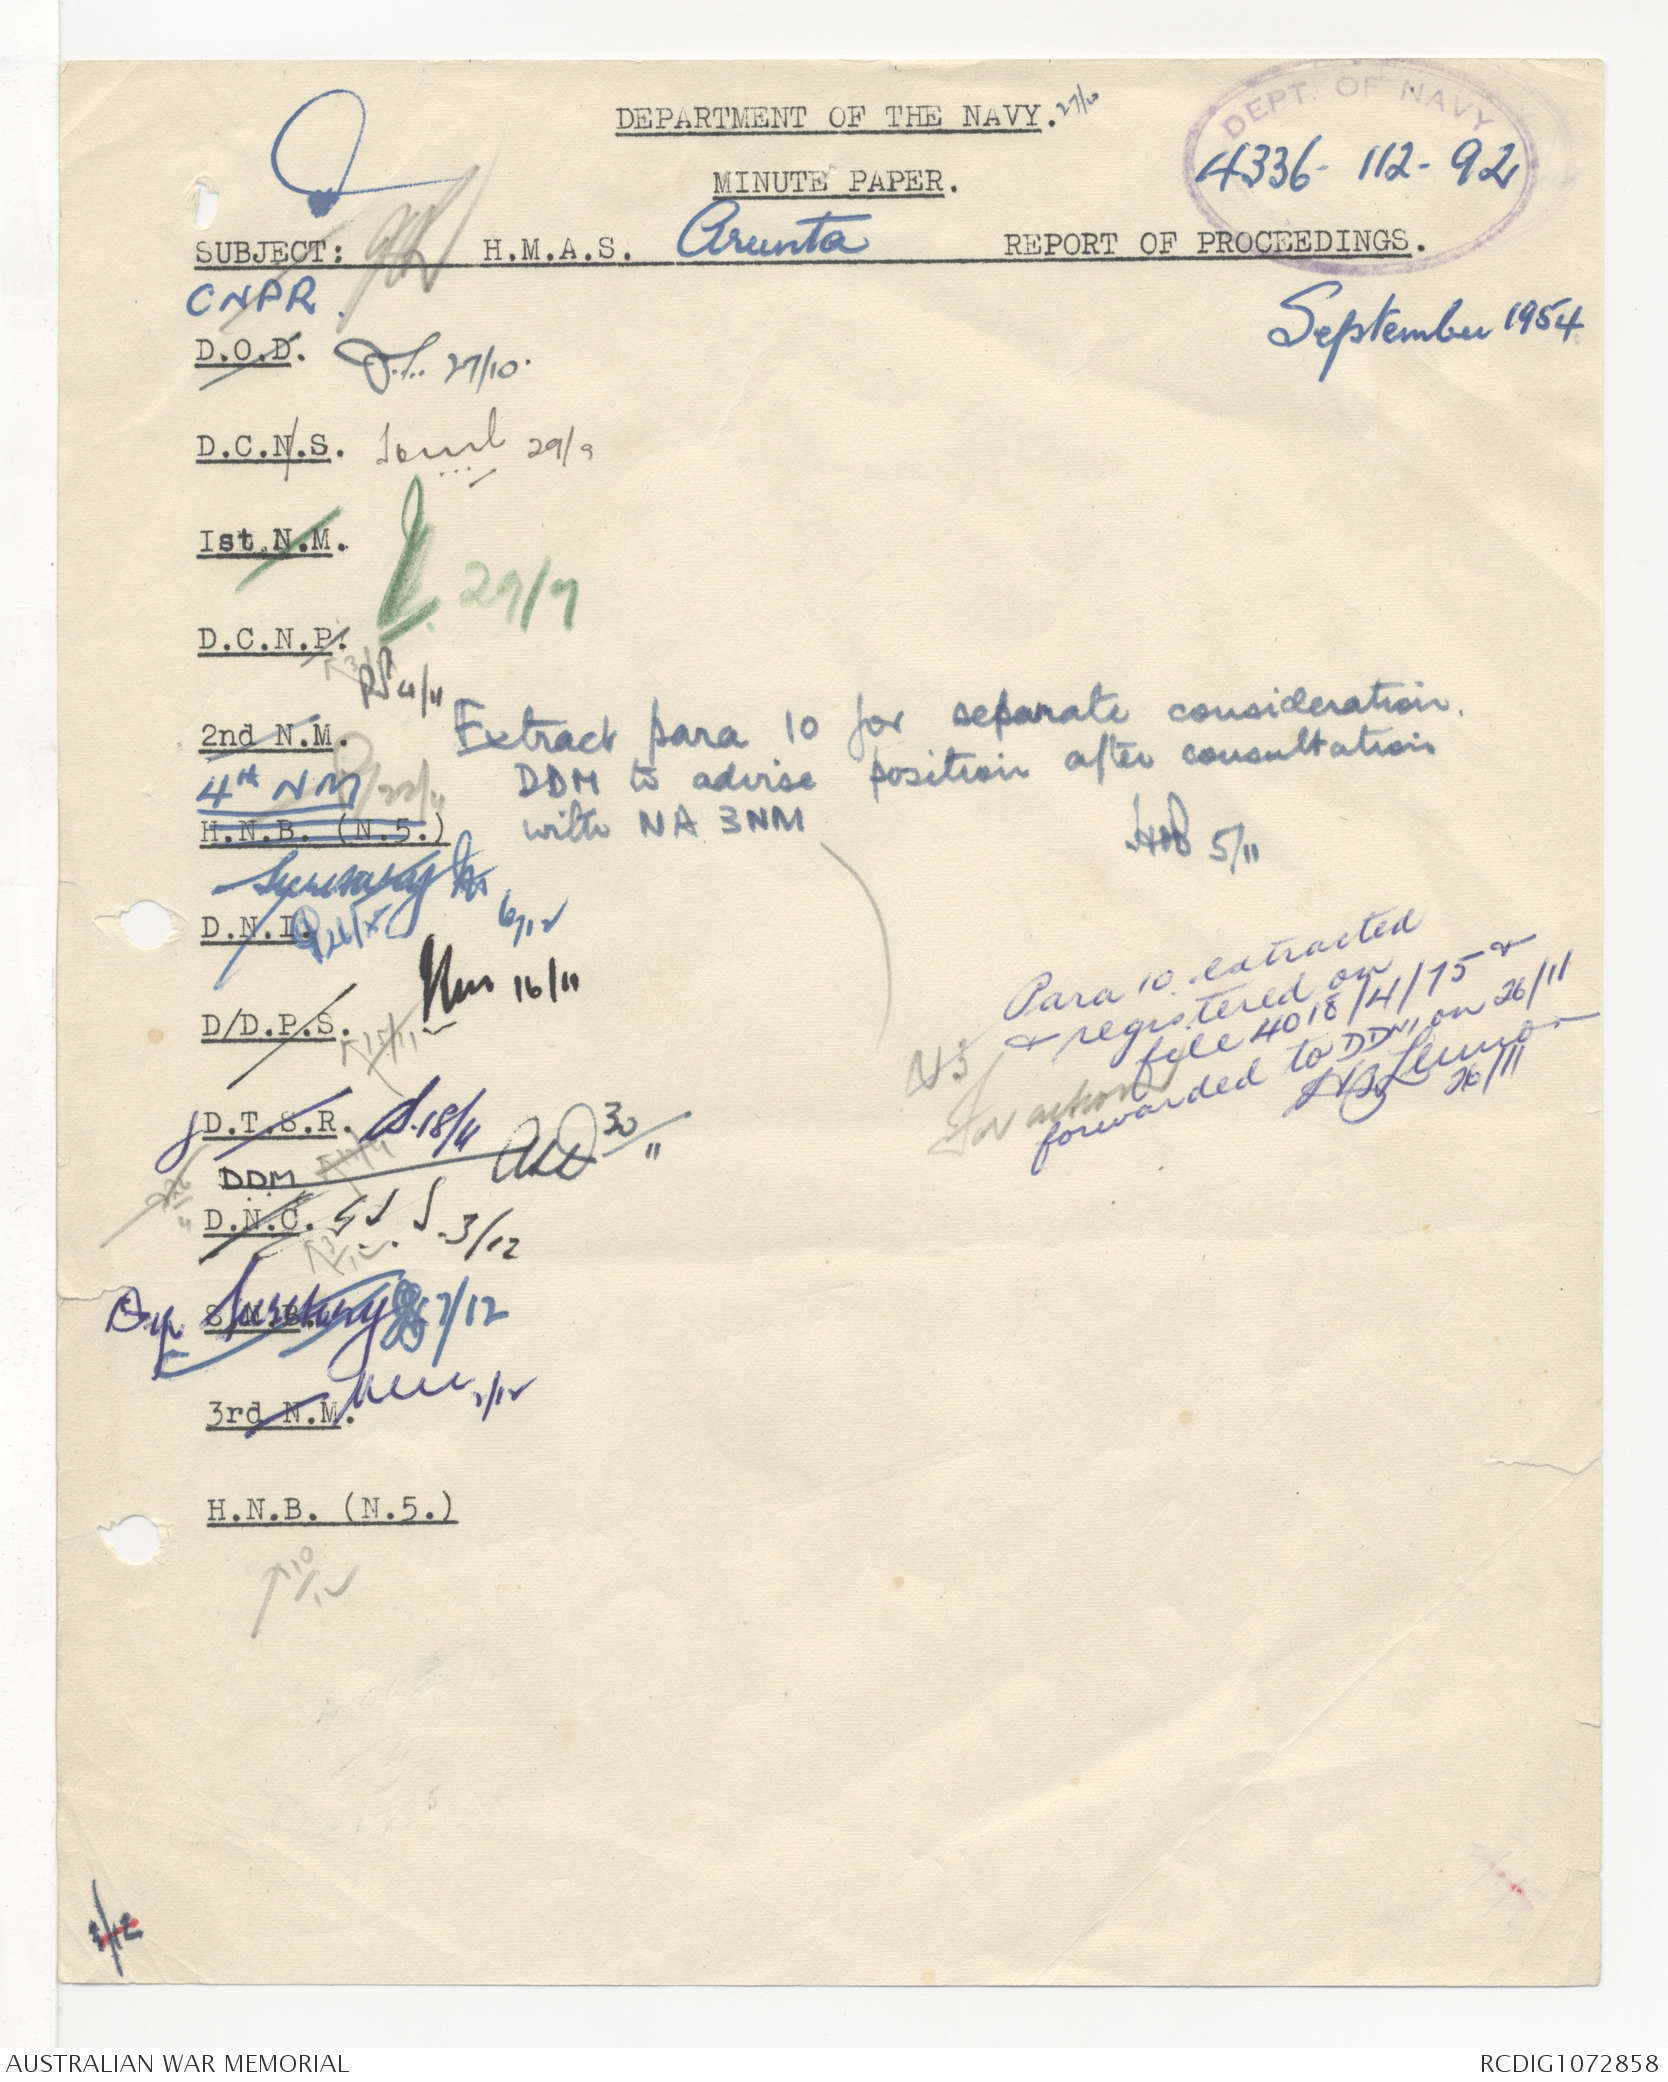 DEPARTMENT OF THE NAVY.
DEPT. OF NAVY
4336-112-92
MINUTE PAPER.
SUBJECT: H.M.A.S. Arunta REPORT OF PROCEEDINGS.
September 1954
CNPR.
D.O.D. 27/10.
D.C.N.S. 29/9
1st.N.M. 29/9
D.C.N.P. 4/11
2nd N.M.
Extract para 10 for separate consideration.
DDM to advise position after consultation
with NA 3NM
5/11
4th NM
H.N.B. (N.5.)
Secretary
6/12
D.N.I.
16/11
D/D.P.S.
Para 10 extracted
& registered on
file 4018/4/75 &
forwarded to DDM, on 26/11
26/11
N5
for action
D.T.S.R. 18/11
DDM 30/11
D.N.C. 3/12
Secretary 7/12
3rd N.M.
H.N.B. (N.5.)
10/12
3/12
AUSTRALIAN WAR MEMORIAL
RCDIG1072858